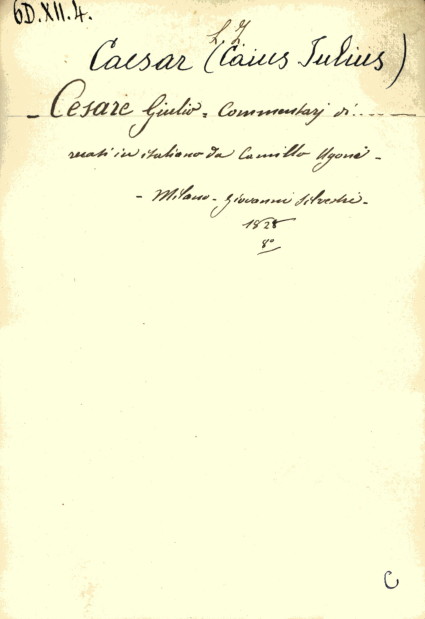 6D.XII.4.
Caesar (Caius Julius)
- Cesare Giulio = Commentarj di.....
recati in italiano da Camillo Ugoni -
- Milano - Giovanni Silvestri -
1828
8°
C